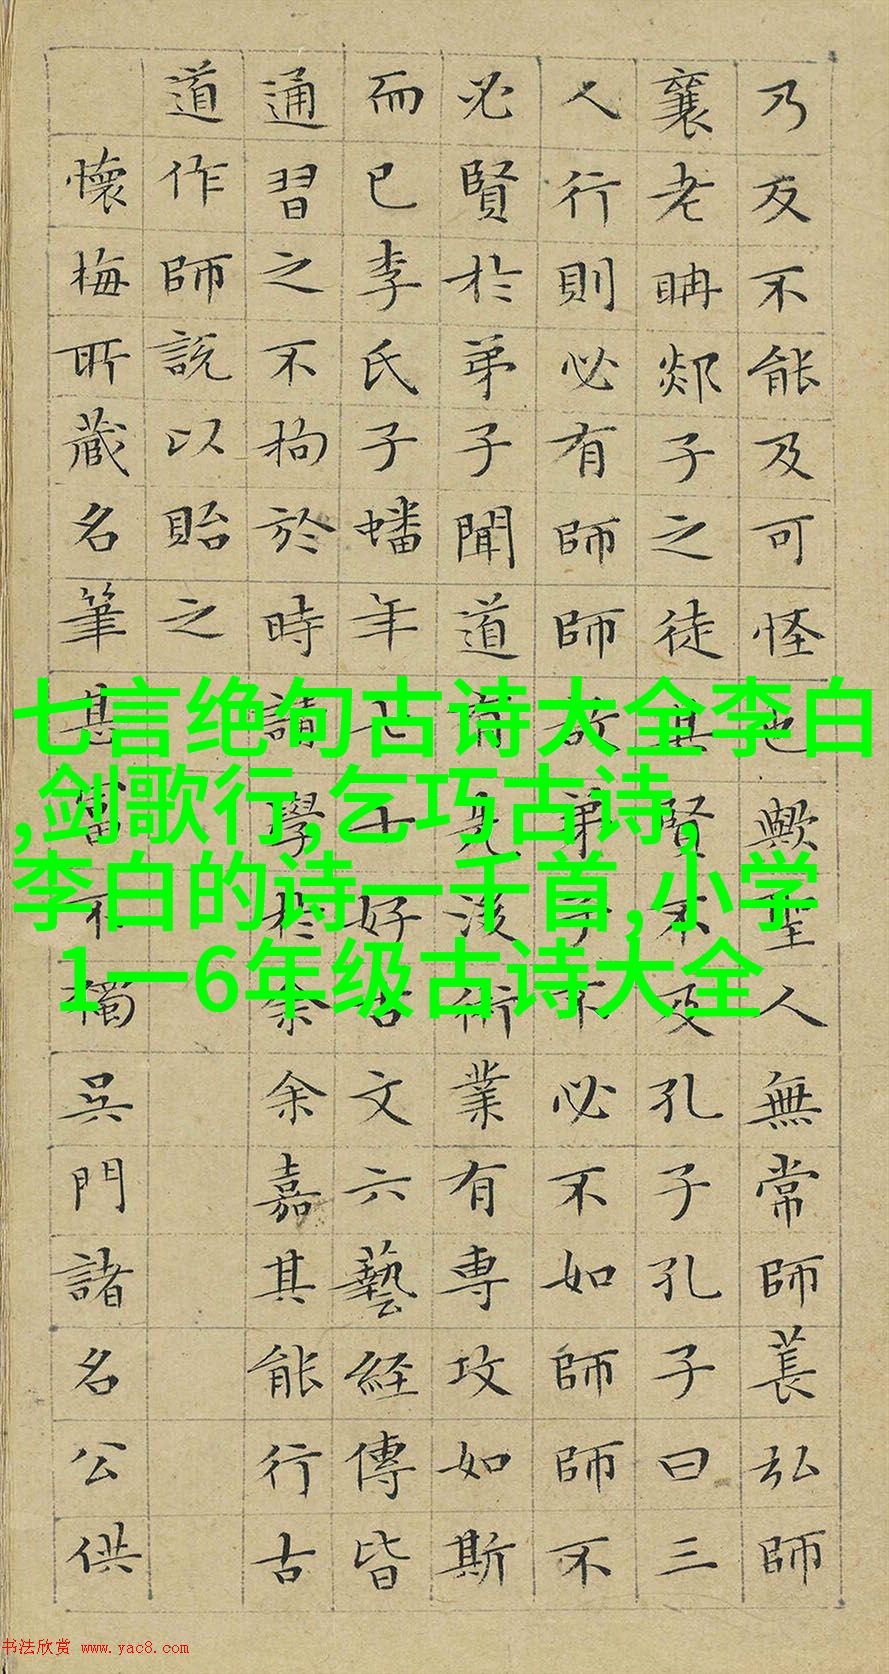 乃反不能及可怪也歟聖人無常師萇弘師
襄老聃郯子之徒其賢不及孔子孔子曰三
人行則必有師師故弟子不必不如師師不
必賢於弟子聞道有先後術業有專攻如斯
而已李氏子蟠年七十好古文六藝經傳皆
通習之不拘於時請學於余余嘉其能行古
道作師說以貽之
懷梅所藏名筆甚富不獨吳門諸名公供
七言绝句古诗大全李白
,剑歌行,乞巧古诗,
李白的诗一千首,小学
1一6年级古诗大全
书法欣赏 www.yac8.com